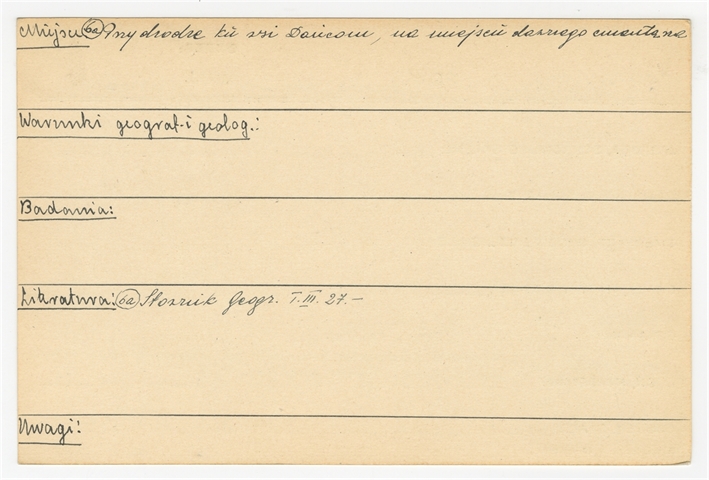 Miejsce (6a) Przy drodze ku wsi Dańcom, na miejscu dawnego cmentarza
Warunki geograf. i geolog.:
Badania:
Literatura: (6a) Słownik Geogr. T. III. 27. –
Uwagi: